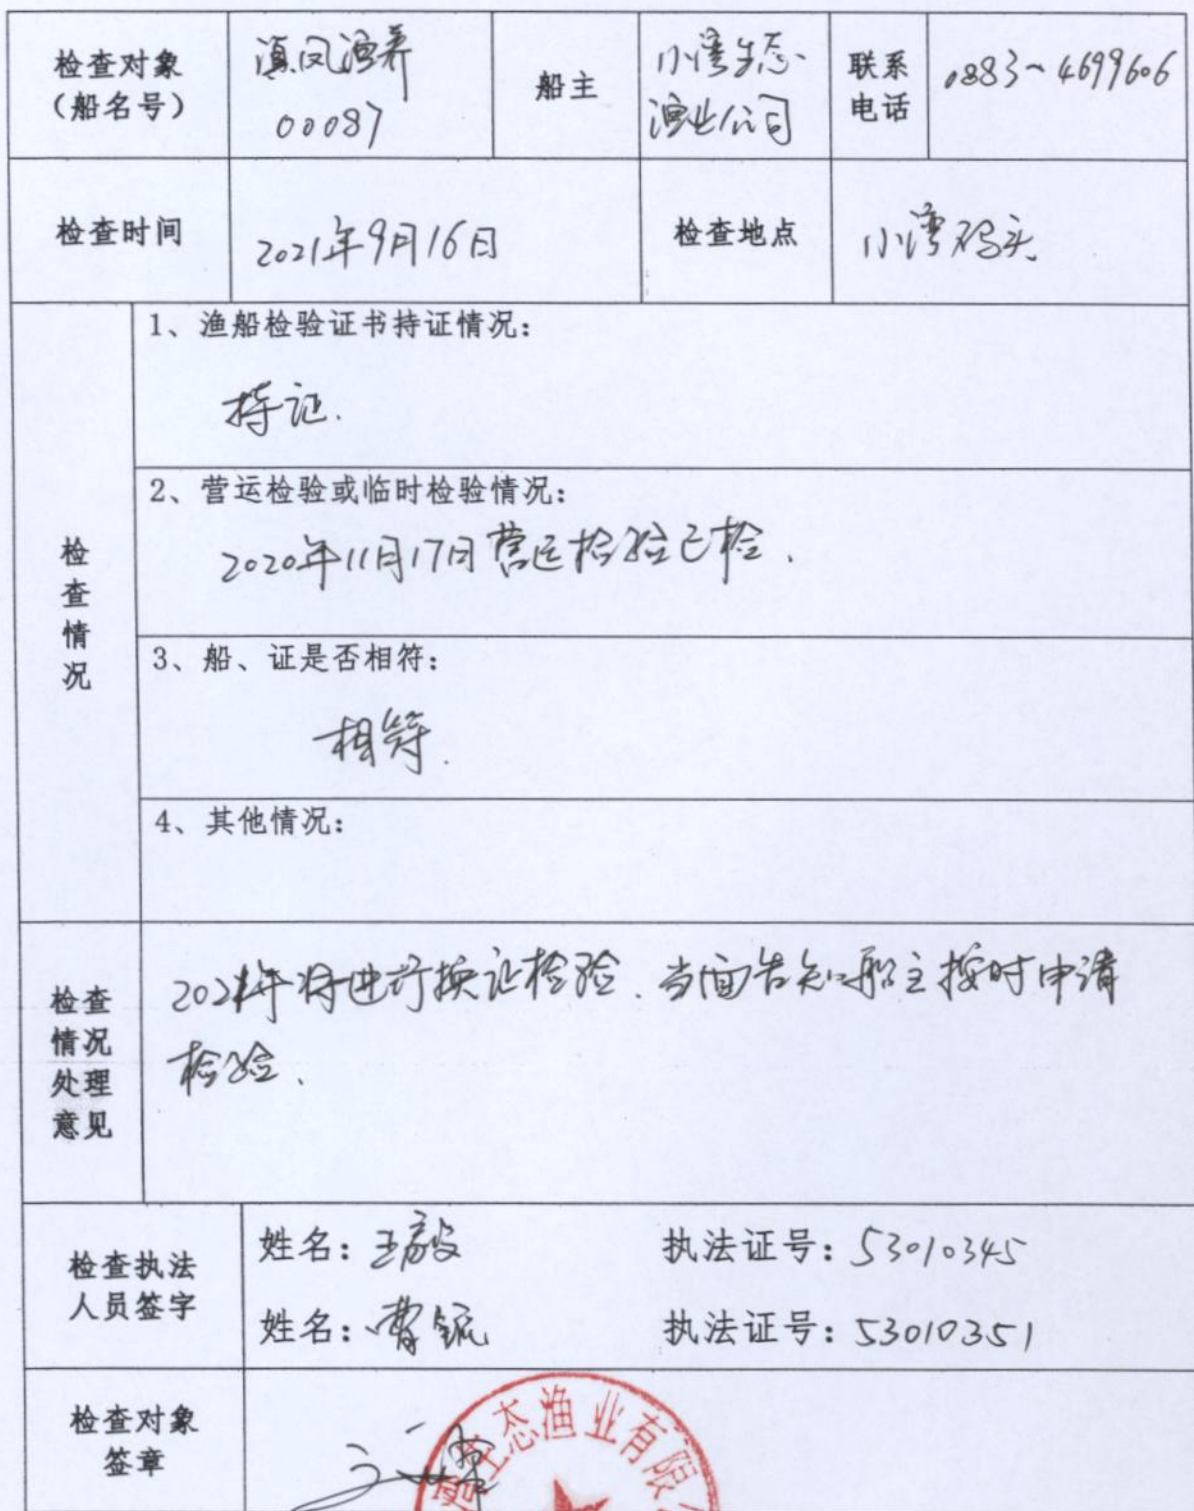 检查对象
（船名号）
滇凤渔养
00087
船主
小湾生态
渔业公司
联系
电话
0883-4699606
检查时间
2021年9月16日
检查地点
小湾码头
检查情况
1、渔船检验证书持证情况：
持证.
2、营运检验或临时检验情况：
2020年11月17日营运检验已检.
3、船、证是否相符：
相符.
4、其他情况：
检查
情况
处理
意见
2021年将进行换证检验.当面告知船主按时申请
检验.
检查执法
人员签字
姓名：王毅
执法证号：53010345
姓名：曹
执法证号：53010351
检查对象
签章
生态渔业有限